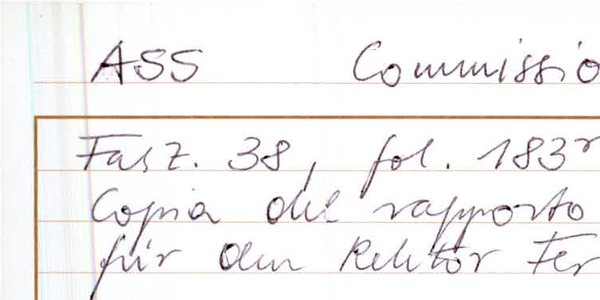 ASS Commissio
Fasz. 38, fol. 183r
Copia del rapporto
für den Rektor Fer